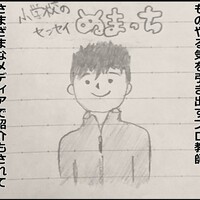 ものやる気を引き出すプロ教師
小学校の
センセイ
ぬまっち
さまざまなメディアで紹介されて